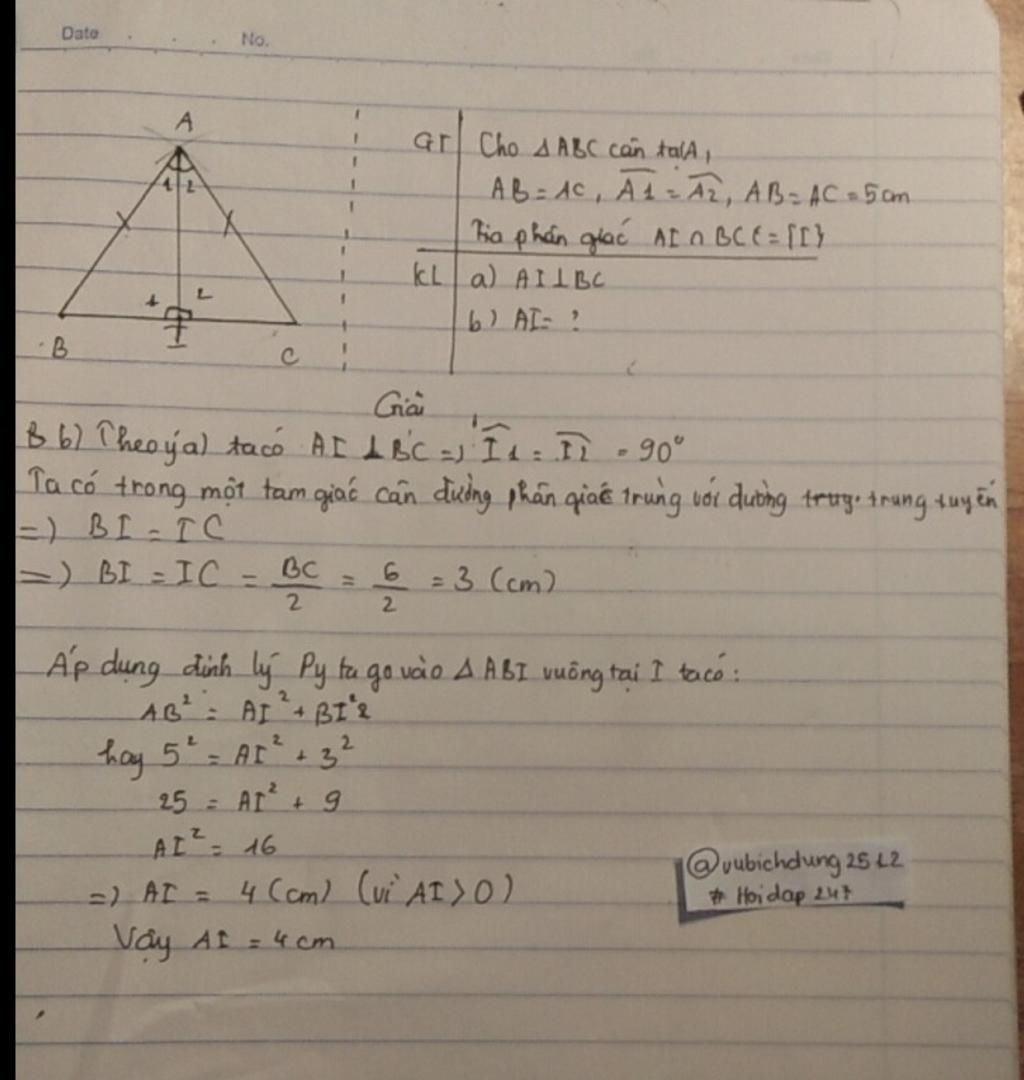 Date . . . No.
A
1 2
1 2
B I C
GT Cho ΔABC cân tại A,
AB = AC, Â1 = Â2, AB = AC = 5cm
Tia phân giác AI ∩ BC = {I}
KL a) AI ⊥ BC
b) AI = ?
Giải
b) Theo ý a) ta có AI ⊥ BC => Î1 = Î2 = 90°
Ta có trong một tam giác cân đường phân giác trùng với đường trung tuyến
=> BI = IC
=> BI = IC = BC/2 = 6/2 = 3 (cm)
Áp dụng định lý Py ta go vào Δ ABI vuông tại I ta có:
AB² = AI² + BI²
hay 5² = AI² + 3²
25 = AI² + 9
AI² = 16
=> AI = 4 (cm) (vì AI > 0)
Vậy AI = 4 cm
@vubichdung2512
# Hoidap 247